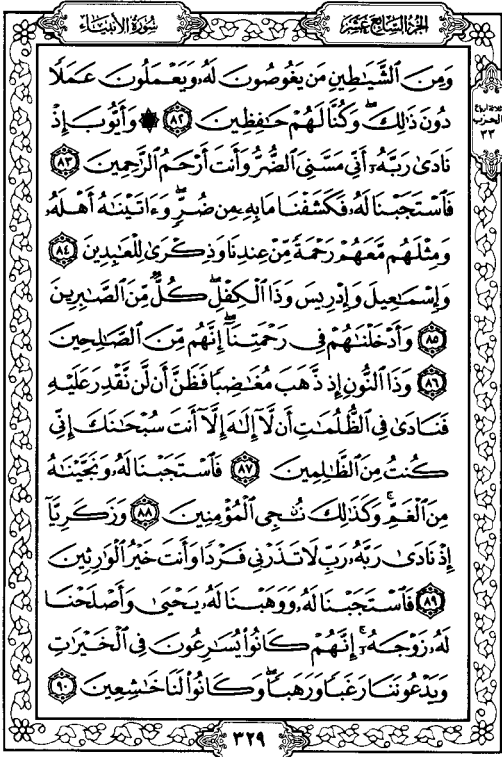 سُورَةُ الأَنبِيَاءِ
الجُزءُ السَّابِعَ عَشَرَ
وَمِنَ ٱلشَّيَٰطِينِ مَن يَغُوصُونَ لَهُۥ وَيَعْمَلُونَ عَمَلًا
دُونَ ذَٰلِكَۖ وَكُنَّا لَهُمْ حَٰفِظِينَ ٨٢ ۞ وَأَيُّوبَ إِذْ
نَادَىٰ رَبَّهُۥٓ أَنِّي مَسَّنِيَ ٱلضُّرُّ وَأَنتَ أَرْحَمُ ٱلرَّٰحِمِينَ ٨٣
فَٱسْتَجَبْنَا لَهُۥ فَكَشَفْنَا مَا بِهِۦ مِن ضُرٍّۖ وَءَاتَيْنَٰهُ أَهْلَهُۥ
وَمِثْلَهُم مَّعَهُمْ رَحْمَةً مِّنْ عِندِنَا وَذِكْرَىٰ لِلْعَٰبِدِينَ ٨٤
وَإِسْمَٰعِيلَ وَإِدْرِيسَ وَذَا ٱلْكِفْلِۖ كُلٌّ مِّنَ ٱلصَّٰبِرِينَ
٨٥ وَأَدْخَلْنَٰهُمْ فِي رَحْمَتِنَآۖ إِنَّهُم مِّنَ ٱلصَّٰلِحِينَ
٨٦ وَذَا ٱلنُّونِ إِذ ذَّهَبَ مُغَٰضِبًا فَظَنَّ أَن لَّن نَّقْدِرَ عَلَيْهِ
فَنَادَىٰ فِي ٱلظُّلُمَٰتِ أَن لَّآ إِلَٰهَ إِلَّآ أَنتَ سُبْحَٰنَكَ إِنِّي
كُنتُ مِنَ ٱلظَّٰلِمِينَ ٨٧ فَٱسْتَجَبْنَا لَهُۥ وَنَجَّيْنَٰهُ
مِنَ ٱلْغَمِّۚ وَكَذَٰلِكَ نُـۨجِي ٱلْمُؤْمِنِينَ ٨٨ وَزَكَرِيَّآ
إِذْ نَادَىٰ رَبَّهُۥ رَبِّ لَا تَذَرْنِي فَرْدًا وَأَنتَ خَيْرُ ٱلْوَٰرِثِينَ
٨٩ فَٱسْتَجَبْنَا لَهُۥ وَوَهَبْنَا لَهُۥ يَحْيَىٰ وَأَصْلَحْنَا
لَهُۥ زَوْجَهُۥٓۚ إِنَّهُمْ كَانُوا۟ يُسَٰرِعُونَ فِي ٱلْخَيْرَٰتِ
وَيَدْعُونَنَا رَغَبًا وَرَهَبًاۖ وَكَانُوا۟ لَنَا خَٰشِعِينَ ٩٠
الحزب
٣٣
٣٢٩